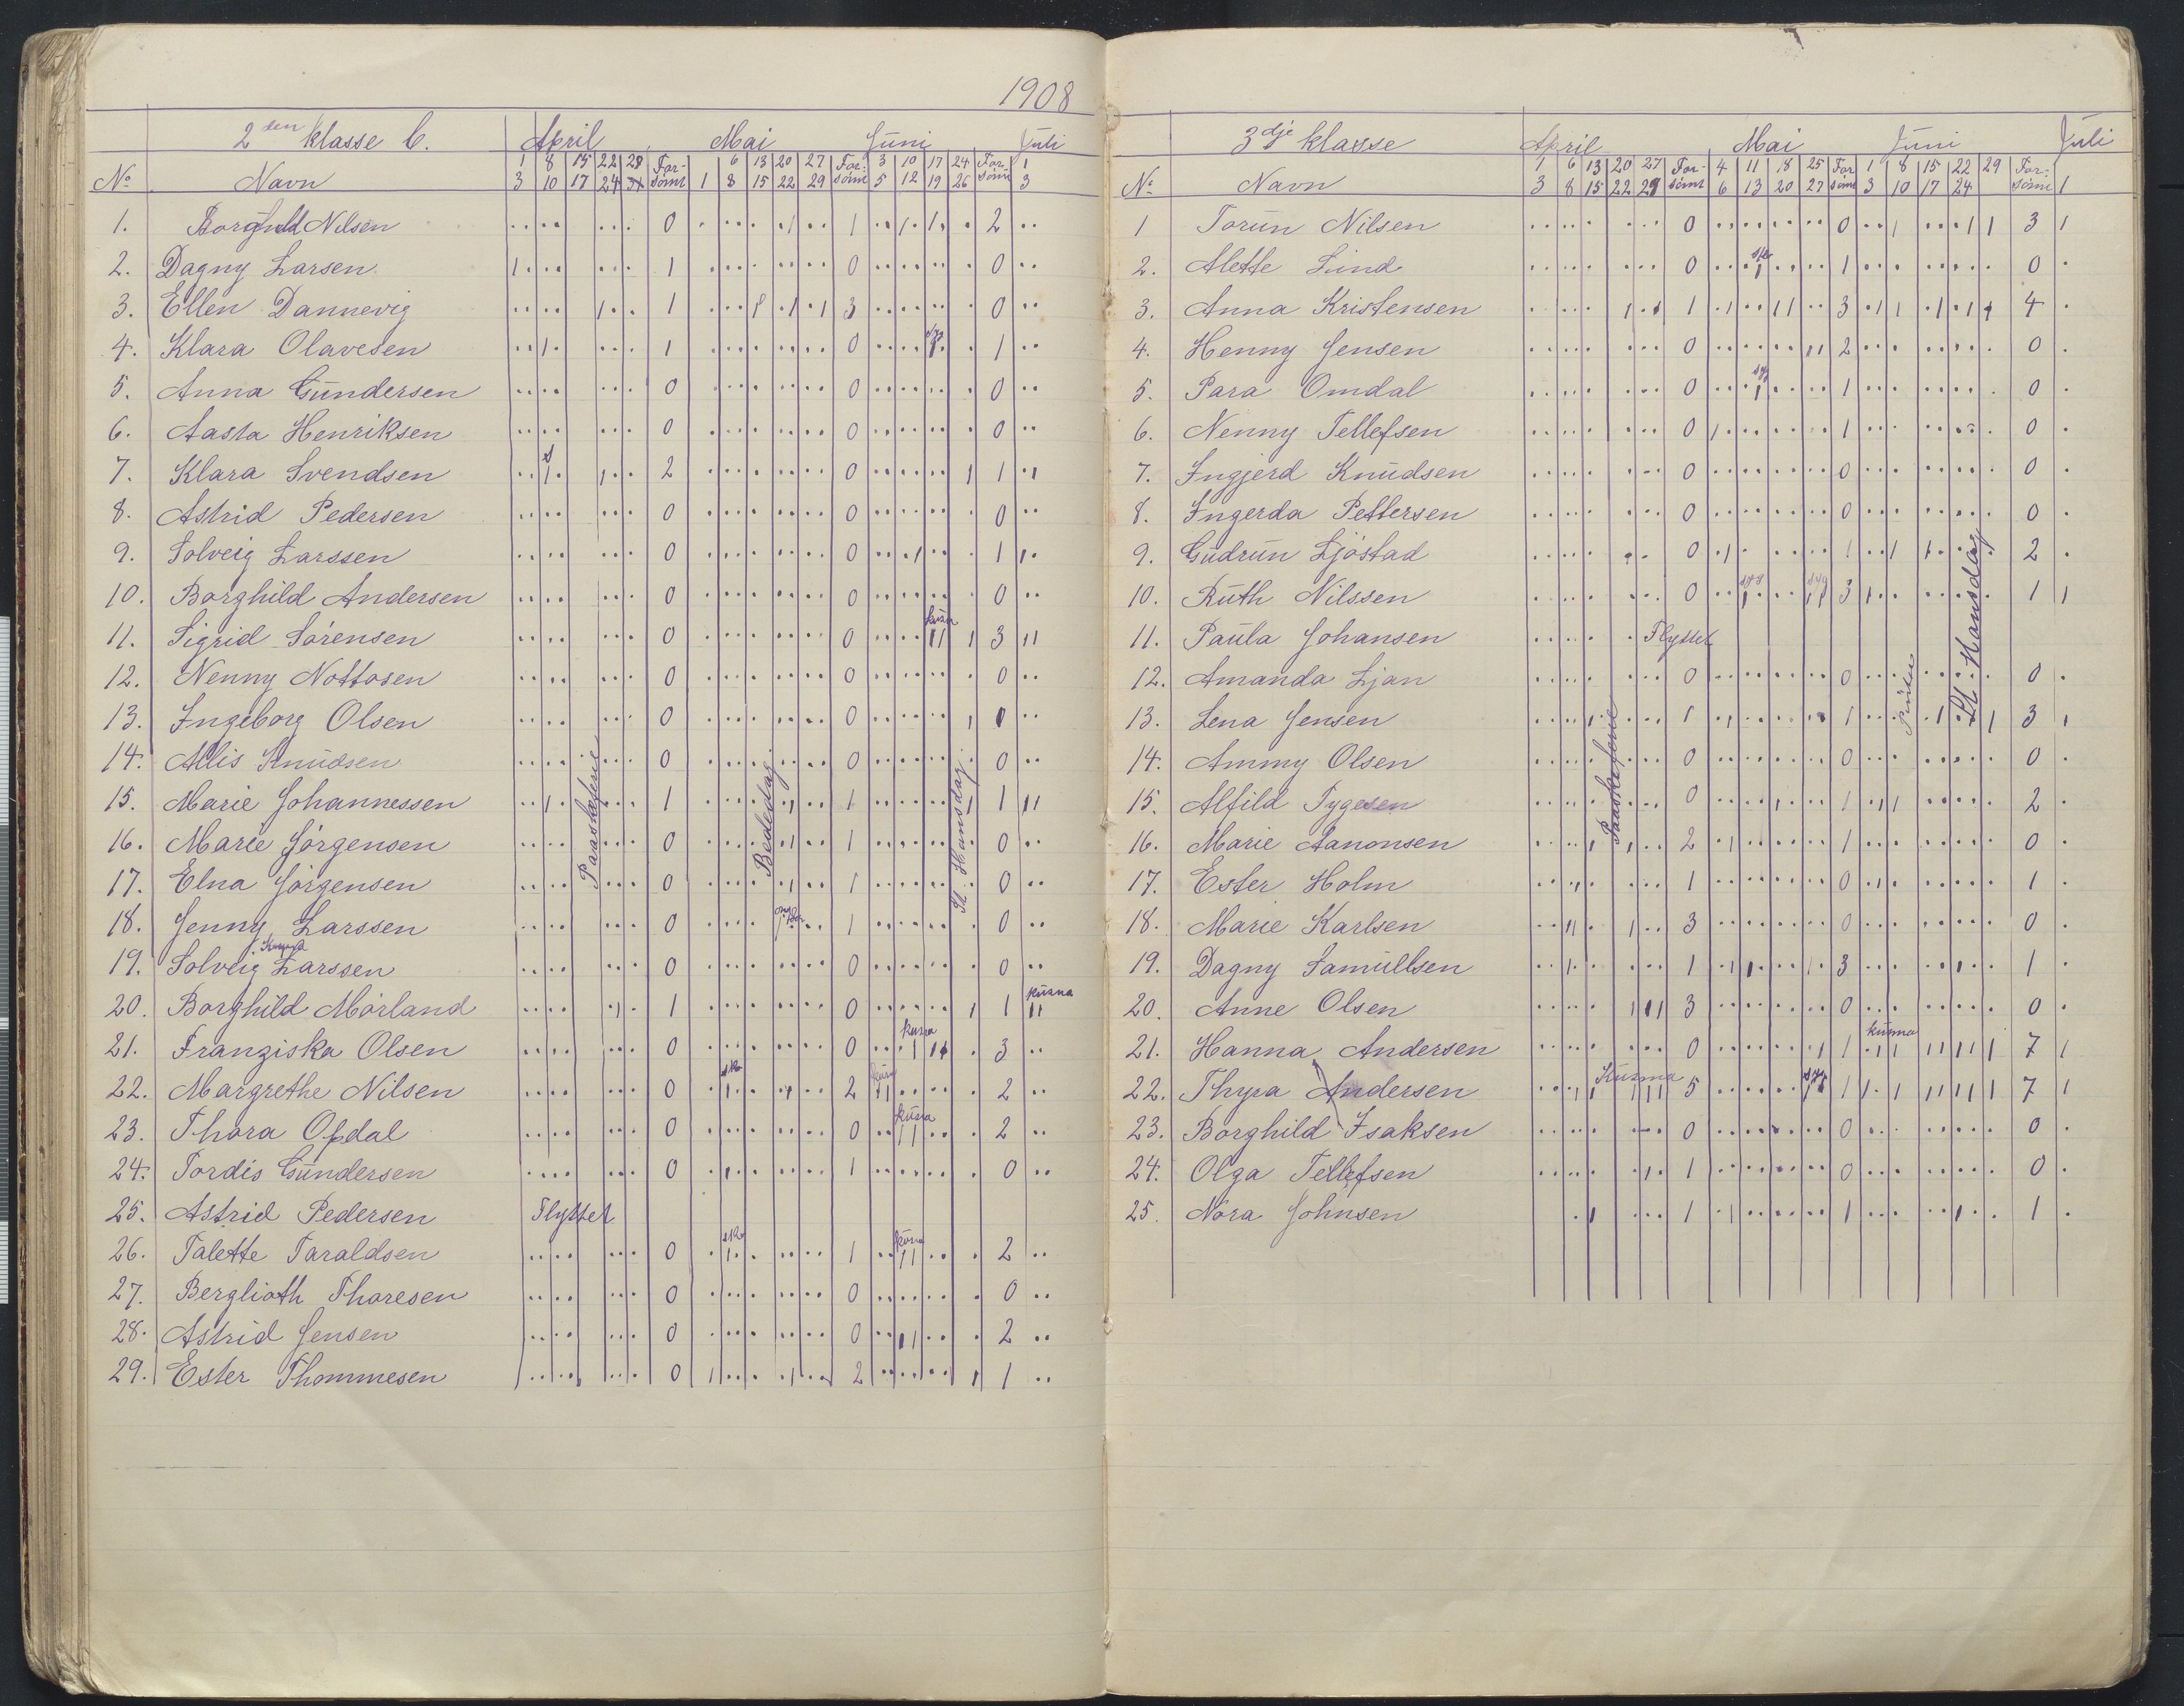 1908
2den klasse C. April Mai Juni Juli
1 8 15 22 29 For- 6 13 20 27 For- 3 10 17 24 For- 1
No Navn 3 10 17 24 sömt 1 8 15 22 29 sömt 5 12 19 26 sömt 3
1. Borghild Nilsen 0 1 2
2. Dagny Larsen 1 0 0
3. Ellen Dannevig 1 3 0
4. Klara Olavesen 1 0 1
5. Anna Gundersen 0 0 0
6. Aasta Henriksen 0 0 0
7. Klara Svendsen 2 0 1
8. Astrid Pedersen 0 0 0
9. Solveig Larssen 0 0 1
10. Borghild Andersen 0 0 0
11. Sigrid Sörensen 0 0 3
12. Nenny Nottosen 0 0 0
13. Ingeborg Olsen 0 0
14. Allis Knudsen 0 0 0
15. Marie Johannessen 1 1 1
16. Marie Jörgensen 0 1 0
17. Elna Jörgensen 0 1 0
18. Jenny Larssen 0 1 0
19. Solveig Larssen 0 0 0
20. Borghild Mörland 1 0 1 kusma
21. Franziska Olsen 0 0 kusma 3
22. Margrethe Nilsen 0 2 2
23. Thora Opdal 0 0 kusma 2
24. Tordis Gundersen 0 1 0
25. Astrid Pedersen Flyttet
26. Talette Taraldsen 0 1 2
27. Berglioth Thoresen 0 0 0
28. Astrid Jensen 0 0 2
29. Ester Thommesen 0 2 1
Paaskeferie
Bededag
St. Hansdag
3dje klasse April Mai Juni Juli
1 6 13 20 27 For- 4 11 18 25 For 1 8 15 22 29 For-
No Navn 3 8 15 22 29 sömt 6 13 20 27 sömt 3 10 17 24 sömt 1
1 Torun Nilsen 0 0 3
2. Alette Lund 0 1 0
3. Anna Kristensen 1 3 4
4. Henny Jensen 0 2 0
5. Para Omdal 0 syg 1 0
6. Nenny Tellefsen 0 1 0
7. Ingjerd Knudsen 0 0 0
8. Ingerda Pettersen 0 0 0
9. Gudrun Ljöstad 0 1 2
10. Ruth Nilssen 0 syg syg 3 1
11. Paula Johansen Flyttet
12. Amanda Ljan 0 0 0
13. Lena Jensen 1 1 3
14. Ammy Olsen 0 0 0
15. Alfild Tygesen 0 1 2
16. Marie Aanonsen 2 1 0
17. Ester Holm 1 0 1
18. Marie Karlsen 3 0 0
19. Dagny Samuelsen 1 3 1
20. Anne Olsen 3 0 0
21. Hanna Andersen 0 1 kusma 7
22. Thyra Andersen Kusma 5 syg 1 7
23. Borghild Isaksen 0 0 0
24. Olga Tellefsen 1 0 0
25. Nora Johnsen 1 1 1
Paaskeferie
Pintse
St. Hansdag